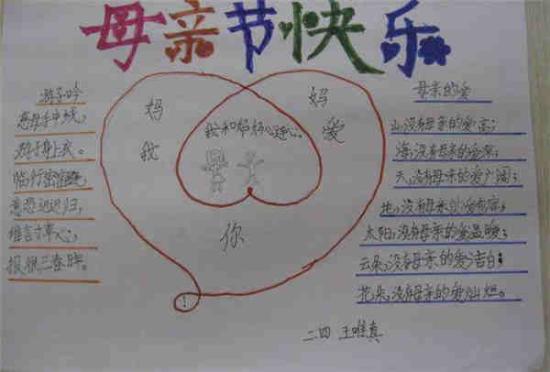 母亲节快乐
游子吟
慈母手中线,
游子身上衣。
临行密密缝,
意恐迟迟归,
谁言寸草心,
报得三春晖。
妈
妈
我
爱
你
!
我和妈妈心连心
母亲的爱
山,没有母亲的爱高;
海,没有母亲的爱深;
天,没有母亲的爱广阔;
地,没有母亲的爱包容;
太阳,没有母亲的爱温暖;
云朵,没有母亲的爱洁白;
花朵,没有母亲的爱灿烂。
二四 王唯真